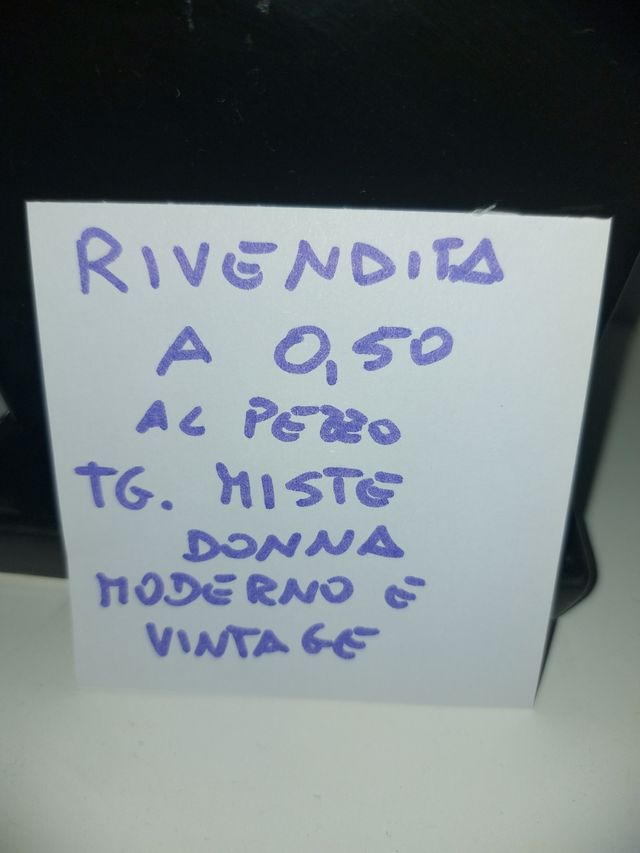 RIVENDITA
A 0,50
AL PEZZO
TG. MISTE
DONNA
MODERNO E
VINTAGE